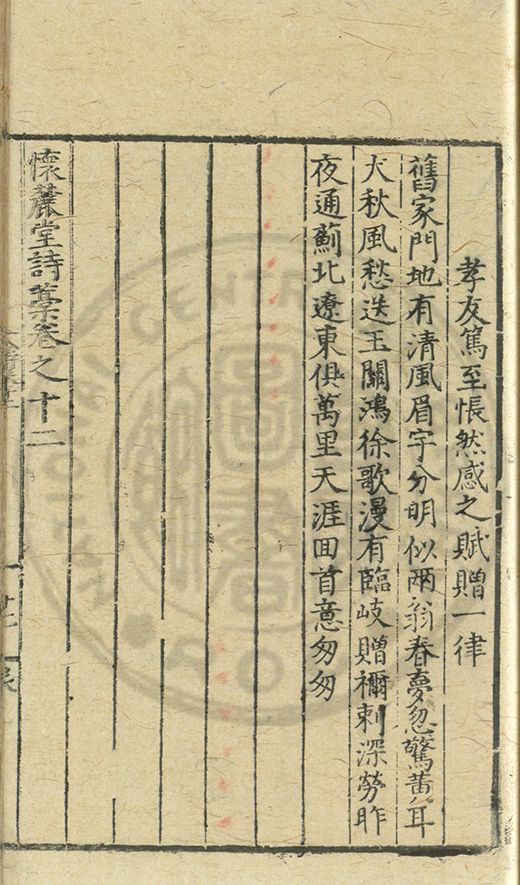 孝友篤至悵然感之賦贈一律
舊家門地有清風眉宇分明似兩翁春夢忽驚黃耳
犬秋風愁迭玉關鴻徐歌漫有臨岐贈禰刺深勞昨
夜通薊北遼東俱萬里天涯回首意匆匆
懷麓堂詩藁卷之十二